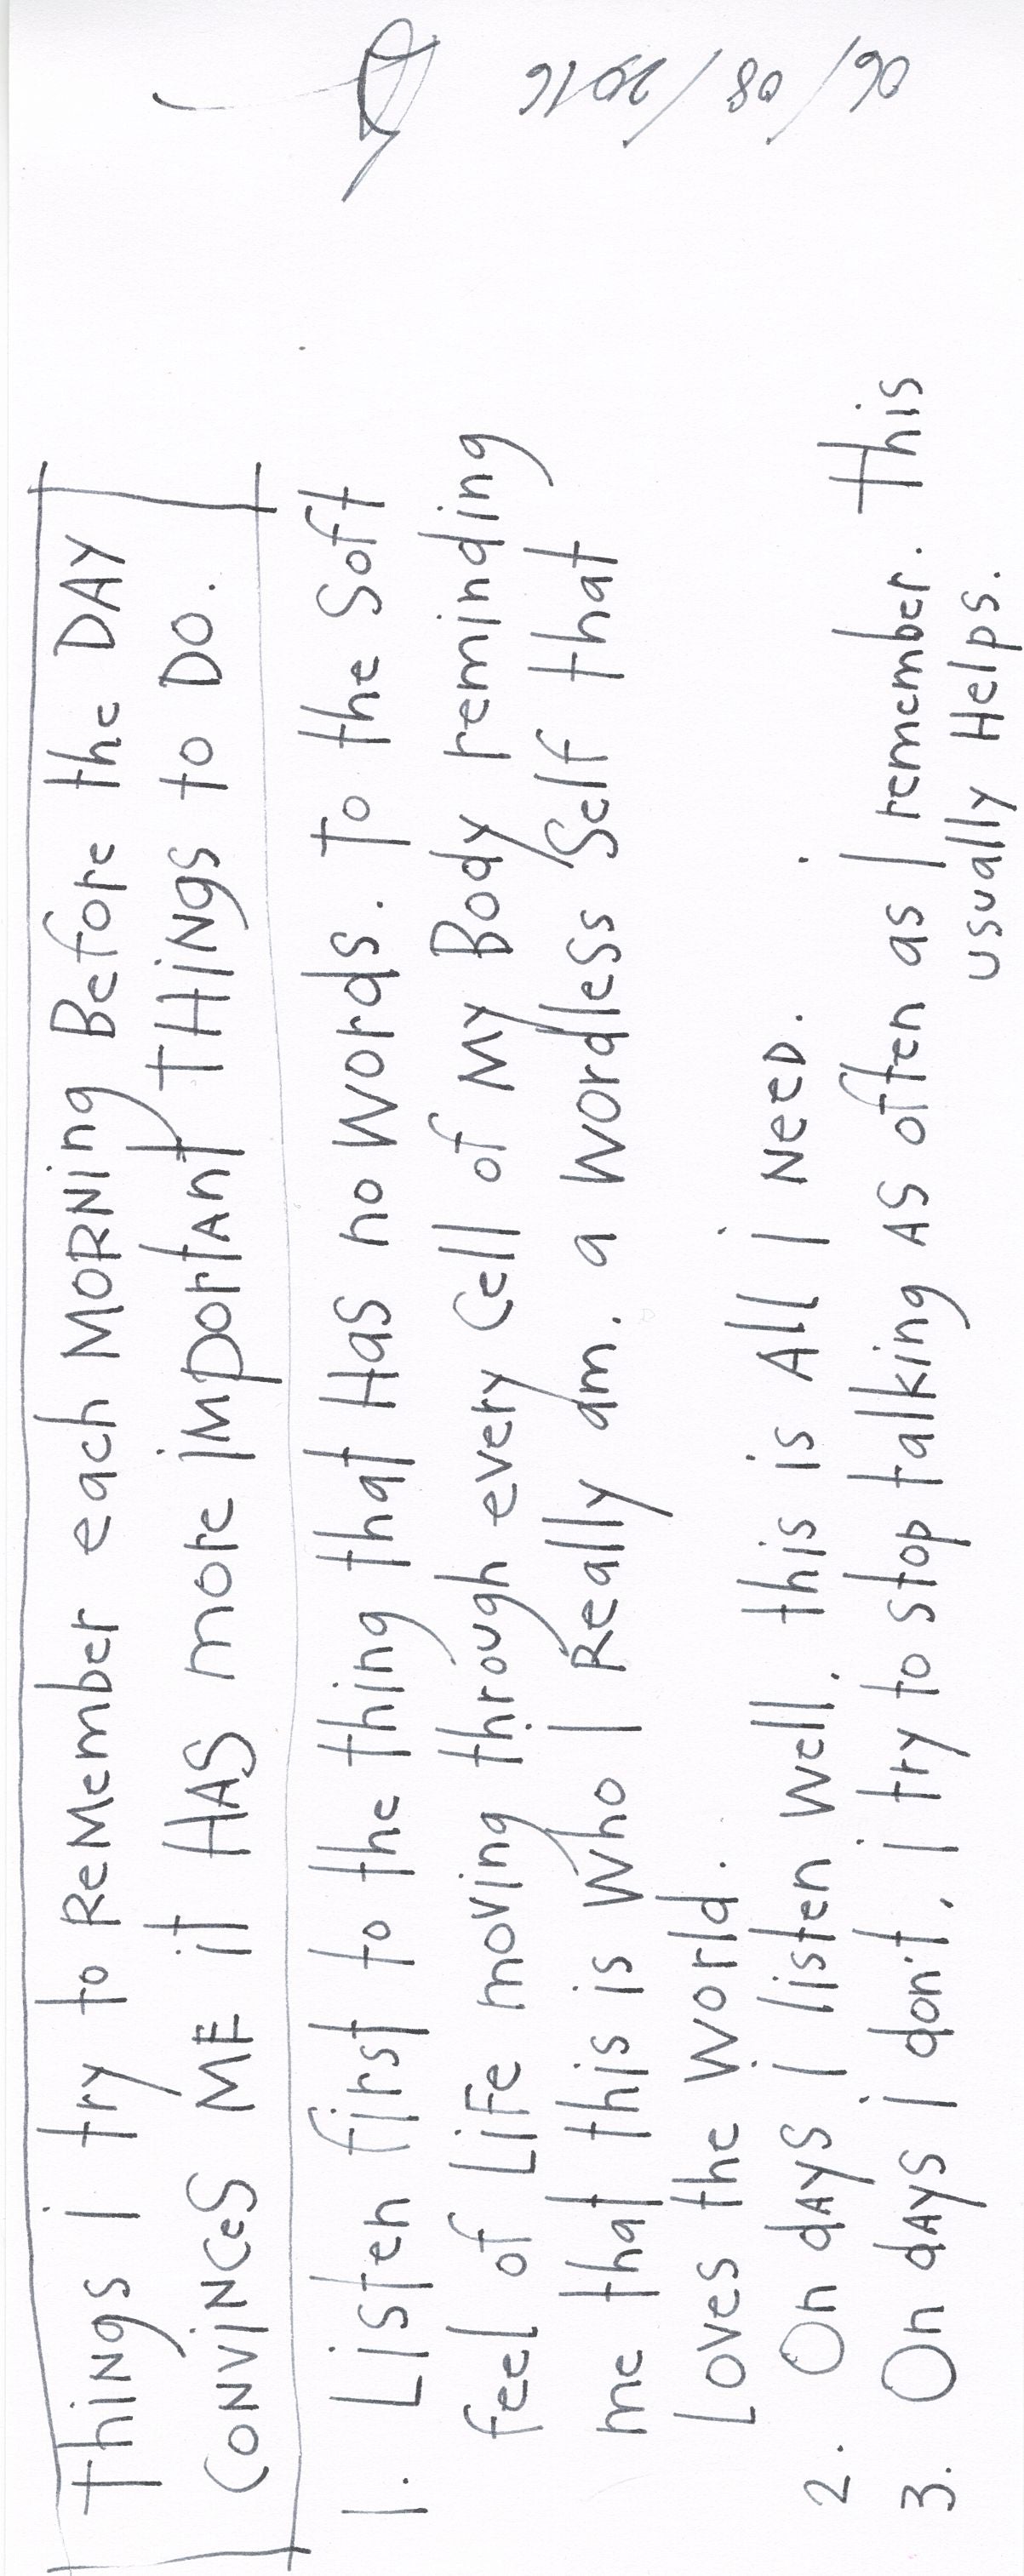 Things I try to ReMember each MORNing Before the DAY
CONViNCeS ME iT HAS more iMportAnt THiNgs to DO.
1. Listen first to the thing that Has no words. To the Soft
feel of LiFe moving through every Cell of My Body reminding
me that this is who I Really am. a wordless Self that
Loves the world.
2. On dAyS I listen well, this is All I NeeD.
3. On dAyS I don't, I try to stop talking AS often as I remember. This
usually Helps.
06/08/2016